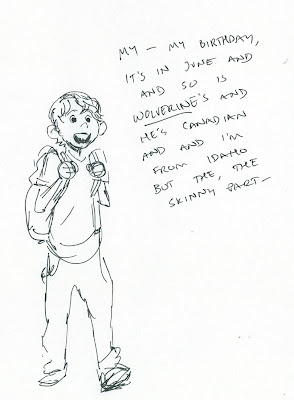 MY — MY BIRTHDAY,
IT'S IN JUNE AND
AND SO IS
WOLVERINE'S AND
HE'S CANADIAN
AND AND I'M
FROM IDAHO
BUT THE, THE
SKINNY PART—